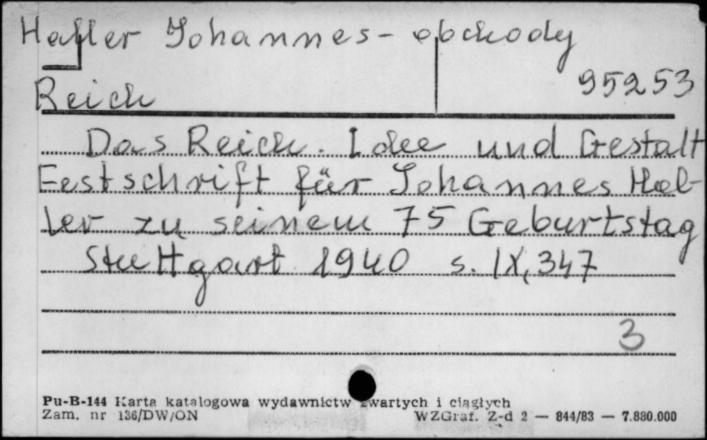 Haller Johannes - obchody
95253
Reich
Das Reich. Idee und Gestalt
Festschrift für Johannes Hal-
ler zu seinem 75 Geburtstag
Stuttgart 1940 s. IX, 347
3
Pu-B-144 Karta katalogowa wydawnictw zwartych i ciągłych
Zam. nr 136/DW/ON WZGraf. Z-d 2 — 844/83 — 7.880.000